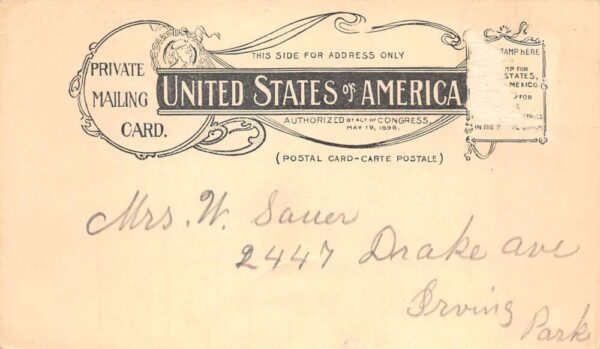 PRIVATE
MAILING
CARD.
THIS SIDE FOR ADDRESS ONLY
UNITED STATES OF AMERICA
AUTHORIZED BY ACT OF CONGRESS,
MAY 19, 1898.
(POSTAL CARD-CARTE POSTALE)
HERE
FOR
STATES,
MEXICO
FOR
IN THE
Mrs. W. Sauer
2447 Drake ave
Irving
Park